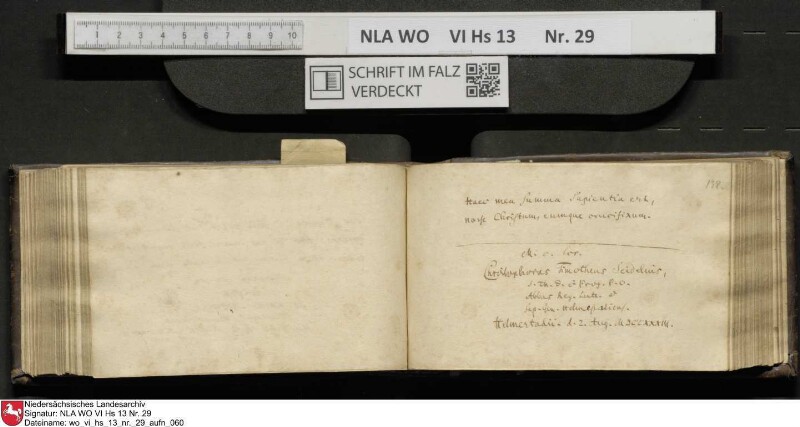 1 2 3 4 5 6 7 8 9 10
NLA WO VI Hs 13 Nr. 29
SCHRIFT IM FALZ
VERDECKT
Haec mea summa sapientia est,
nosse Christum, eumque crucifixum.
Timotheus Seidelius,
S. Th. D. et Prof. P. O.
Abbas Reg. Lutt. et
Helmstadii. d. 2. Aug. MDCCXXXIII.
Niedersächsisches Landesarchiv
Signatur: NLA WO VI Hs 13 Nr. 29
Dateiname: wo_vi_hs_13_nr._29_aufn_060